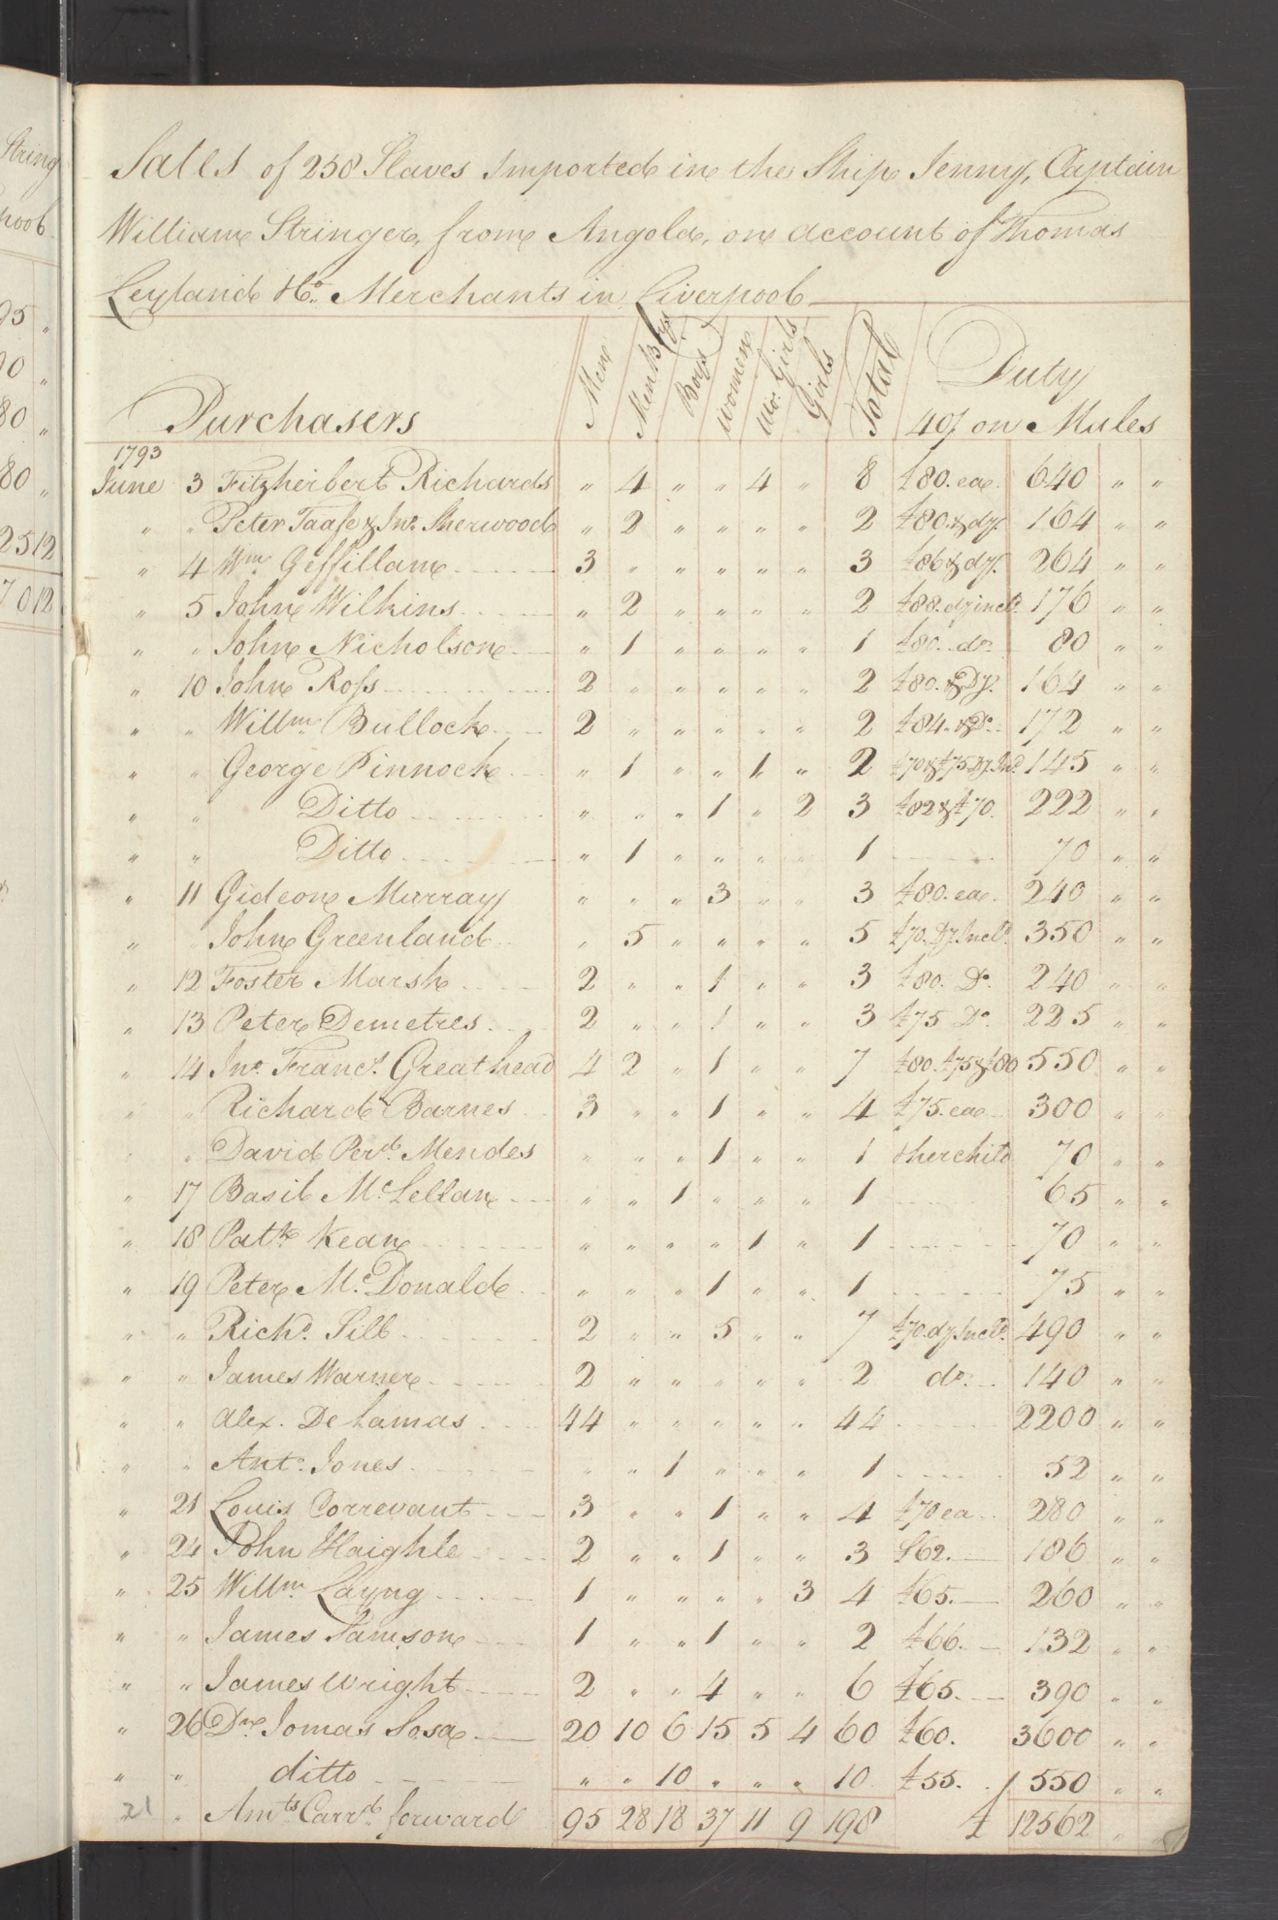 Sales of 258 Slaves Imported in the Ship Jenny, Captain
William Stringer, from Angola, on account of Thomas
Leyland & Co. Merchants in Liverpool
Purchasers Men Men Boys Boys Women Wo. Girls Girls Total Duty
40/ on Mules
1793
June 3 Fitzherbert Richards " 4 " " 4 " 8 £80. ea. 640 " "
" " Peter Taafe & Jno. Sherwood " 2 " " " " 2 £80. & dy. 164 " "
" 4 Wm. Geffillam 3 " " " " " 3 £86 & dy. 264 " "
" 5 John Wilkins " 2 " " " " 2 £88. dy incl. 176 " "
" " John Nicholson " 1 " " " " 1 £80. do. 80 " "
" 10 John Ross 2 " " " " " 2 £80. & Dy. 164 " "
" " Willm. Bullock 2 " " " " " 2 £84. & Do. 172 " "
" " George Pinnock " 1 " " 1 " 2 £70 & £75 Dy. Incd. 145 " "
" " Ditto " " " 1 " 2 3 £82 & £70. 222 " "
" " Ditto " 1 " " " " 1 70 " "
" 11 Gideon Murray " " " 3 " " 3 £80. ea. 240 " "
" " John Greenland " 5 " " " " 5 £70. Dy. Incld. 350 " "
" 12 Foster Marsh 2 " " 1 " " 3 £80. Do. 240 " "
" 13 Peter Demetres 2 " " 1 " " 3 £75 Do. 225 " "
" 14 Jno. Francs. Greathead 4 2 " 1 " " 7 £80. £75 & £80 550 " "
" " Richard Barnes 3 " " 1 " " 4 £75. ea 300 " "
" " David Perd. Mendes " " " 1 " " 1 & her child 70 " "
" 17 Basil McLellan " " 1 " " " 1 65 " "
" 18 Patk. Kean " " " " 1 " 1 70 " "
" 19 Peter McDonald " " " 1 " " 1 75 " "
" " Richd. Sill 2 " " 5 " " 7 £70. dy Incld. 490 " "
" " James Warner 2 " " " " " 2 do. 140 " "
" " Alex. De Lamas 44 " " " " " 44 2200 " "
" " Anto. Jones " " 1 " " " 1 52 " "
" 21 Louis Correvant 3 " " 1 " " 4 £70 ea 280 " "
" 24 John Haighle 2 " " 1 " " 3 £62. 186 " "
" 25 Willm. Layng 1 " " " " 3 4 £65. 260 " "
" " James Samson 1 " " 1 " " 2 £66. 132 " "
" " James Wright 2 " " 4 " " 6 £65. 390 " "
" 26 Dn. Jomas Sosa 20 10 6 15 5 4 60 £60. 3600 " "
" " ditto " " 10 " " " 10 £55. 550 " "
21 " Amts. Carrd. forward 95 28 18 37 11 9 198 £ 12562 " "
String
pool
95 "
90 "
80 "
80 "
25 12
70 12